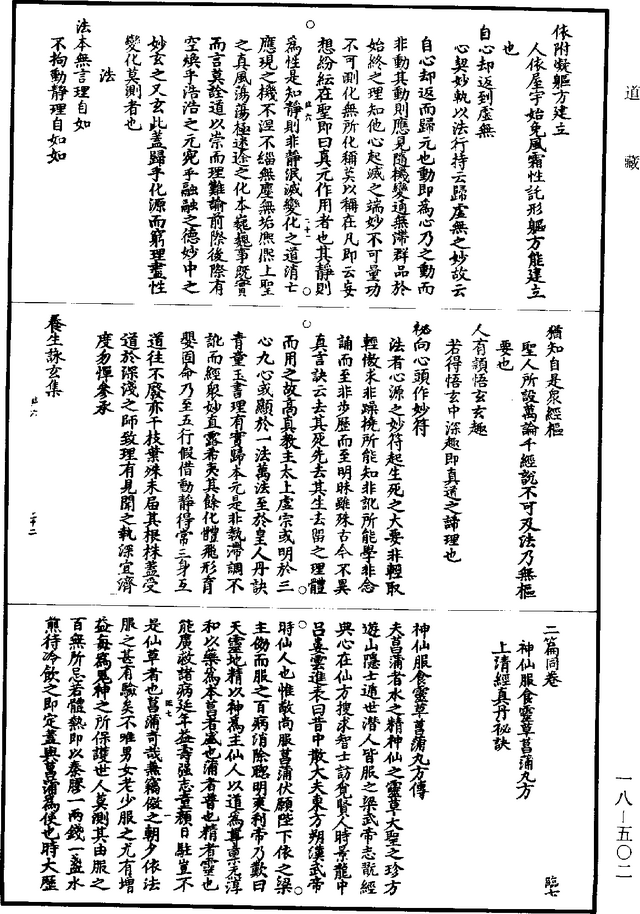 道藏
依附凝軀方建立
人依屋宇始免風霜性託形軀方能建立
也
自心却返到虛無
心契妙執以法行持云歸虛無之妙故云
自心却返而歸元也動即為心乃之動而
非動其動則應見隨機變通無滯群品於
始終之理知他心起滅之端妙不可量功
不可測化無所化稱莫以稱在凡即云妄
想紛紜在聖即曰真元作用者也其靜則
為性是知靜則非靜泯滅變化之道消亡
應現之機不涅不緇無塵無垢熙熙上聖
之真風蕩蕩極遠途之化本巍巍事既實
而言莫詮道以崇而理難諭前際後際有
空煥乎浩浩之元宛乎融融之德妙中之
妙玄之又玄此蓋歸乎化源而窮理盡性
變化莫測者也
法
法本無言理自如
不拘動靜理自如如
猶知自是眾經樞
聖人所設萬論千經說不可及法乃無樞
要也
人有頓悟玄玄趣
若得悟玄中深趣即真道之諦理也
秘向心頭作妙符
法者心源之妙符起生死之大要非輕取
輕慠求非躁撓所能知非訛所能學非念
誦而至非步歷而至明昧雖殊古今不異
真言訣云去其死先去其生去留之理體
而用之故高真教主太上虛宗或明於三
心九心或顯於一法萬法至於皇人丹訣
青童玉書理有實歸本元是非執滯調不
訛而經眾妙直露希夷其餘化體飛形育
嬰固命乃至五行假借動靜得常三身互
道往不廢亦千枝葉殊未屆其根株蓋受
道於深淺之師致理有見聞之執深宜濟
度勿憚參承
養生詠玄集
臨六
二十二
二篇同卷
神仙服食靈草菖蒲丸方
上清經真丹祕訣
臨七
神仙服食靈草菖蒲丸方傳
夫菖蒲者水之精神仙之靈草大聖之珍方
遊山隱士遁世潛人皆服之梁武帝志翫經
典心在仙方搜求智士訪覓賢人時景龍中
呂嘉靈進表曰昔中散大夫東方朔漢武帝
時仙人也惟敵尚服菖蒲伏願陛下依之梁
主勅而服之百病消除聰明爽利帝乃歎曰
天靈地精以神為主仙人以道為尊稟炁淳
和以藥為本菖者盛也蒲者普也精者靈也
能廣救諸病延年益壽強志童顏日駐豈不
是仙草者也菖蒲奇哉兼竊儆之朝夕依法
服之甚有驗矣不唯男女老少服之尤有增
益每為鬼神之所保護世人莫測其由服之
百無所忌若體熱即以秦膠一兩錢一盞水
煎待冷飲之即定蓋與菖蒲為使也時大歷
一八—五〇二